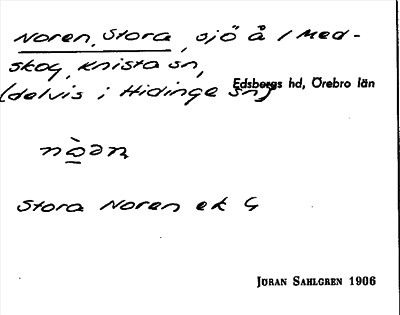 Noren, Stora, sjö å / Med-
skog, Knista sn,
(delvis i Hidinge sn)
Edsbergs hd, Örebro län
Stora Noren ek G
JÖRAN SAHLGREN 1906